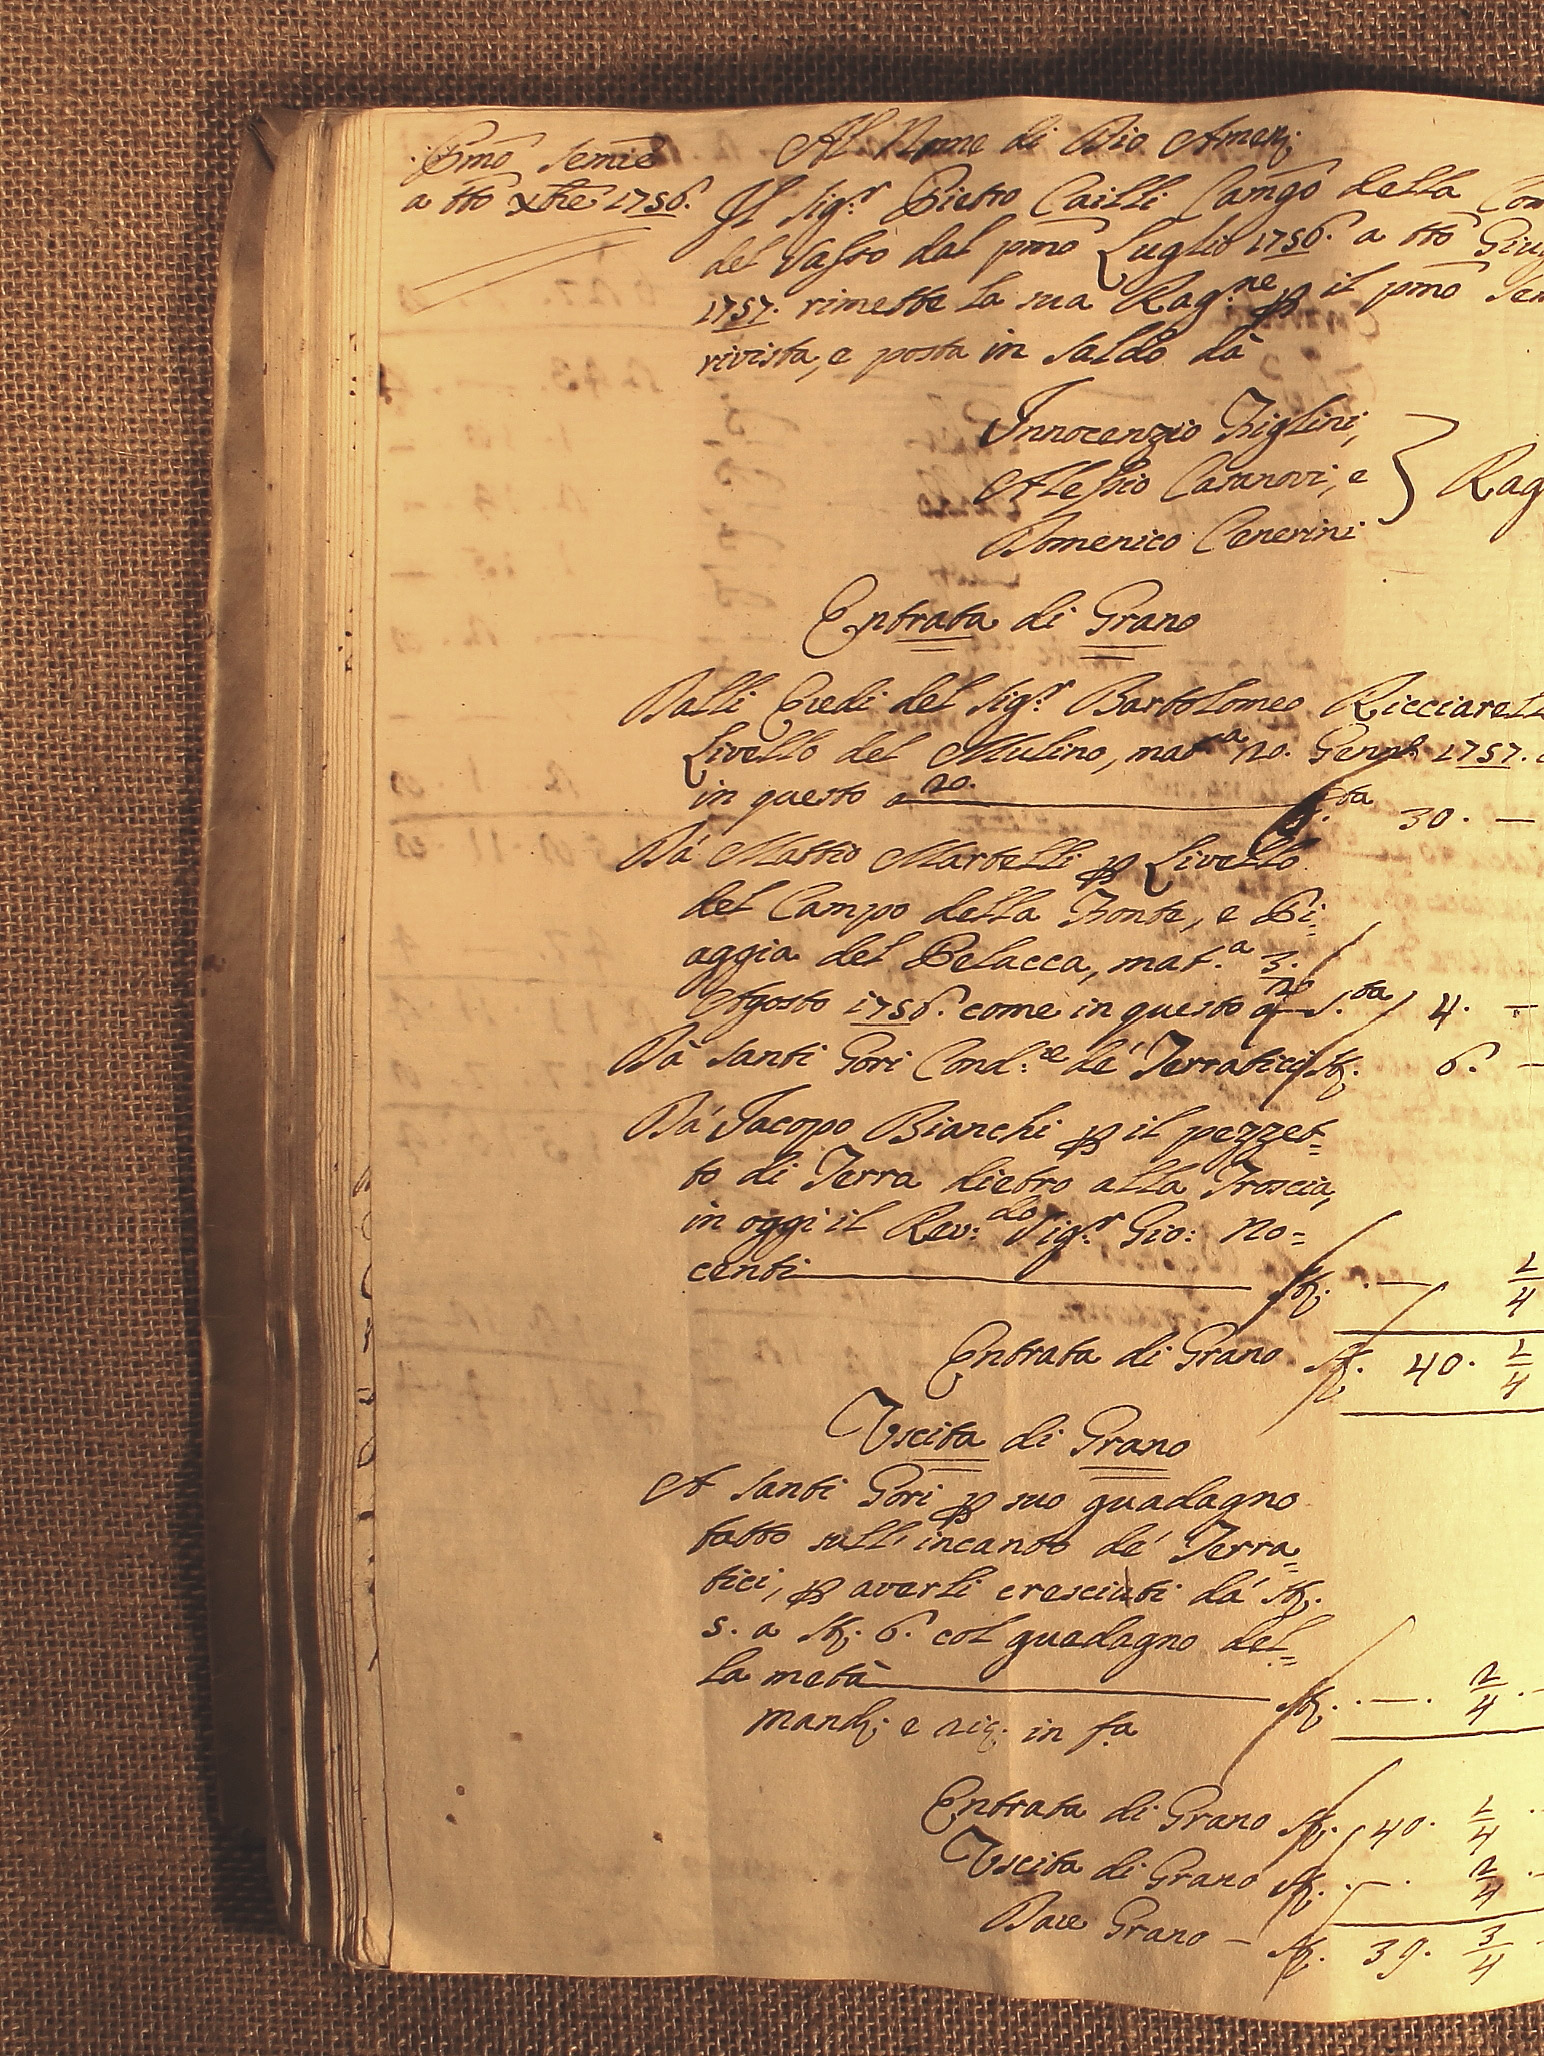 Pmo Semre
a tto Xbre 1756.
Al Nome di Dio Amen;
Il Sig.r Pietro Cailli Camgo della Com
del Sasso dal pmo Luglio 1756. a tto Giug
1757. rimette la sua Rag.ne p il pmo Sem
rivista, e posta in saldo dà
Innocenzio Figlini,
Alessio Casanovi, e
Domenico Cenerini
Rag
Entrata di Grano
Dalli Eredi del Sig.r Bartolomeo Ricciarell
Livello del Mulino, mat.a 20. Genn. 1757.
in questo a 20. S.ta 30. —
Dà Mattio Martelli p Livello
del Campo della Fonte, e Pi=
aggia del Pelacca, mat.a 3.
Agosto 1756. come in questo a 20 S.ta 4. —
Dà Santi Gori Cond.re de' Terratici St. 6. —
Dà Jacopo Bianchi p il pezzet=
to di Terra dietro alla Troscia,
in oggi il Rev:do Sig.r Gio: No=
centi St. . — 1/4
Entrata di Grano St. 40. 1/4
Uscita di Grano
A Santi Gori p suo guadagno
fatto sull'incanto de' Terra=
tici, p averli cresciuti dà St.
5. a St. 6. col guadagno del=
la metà St. . — . 2/4
Mand; e ric; in f.a
Entrata di Grano St. 40. 1/4
Uscita di Grano St. . — . 2/4
Dare Grano — St. 39. 3/4